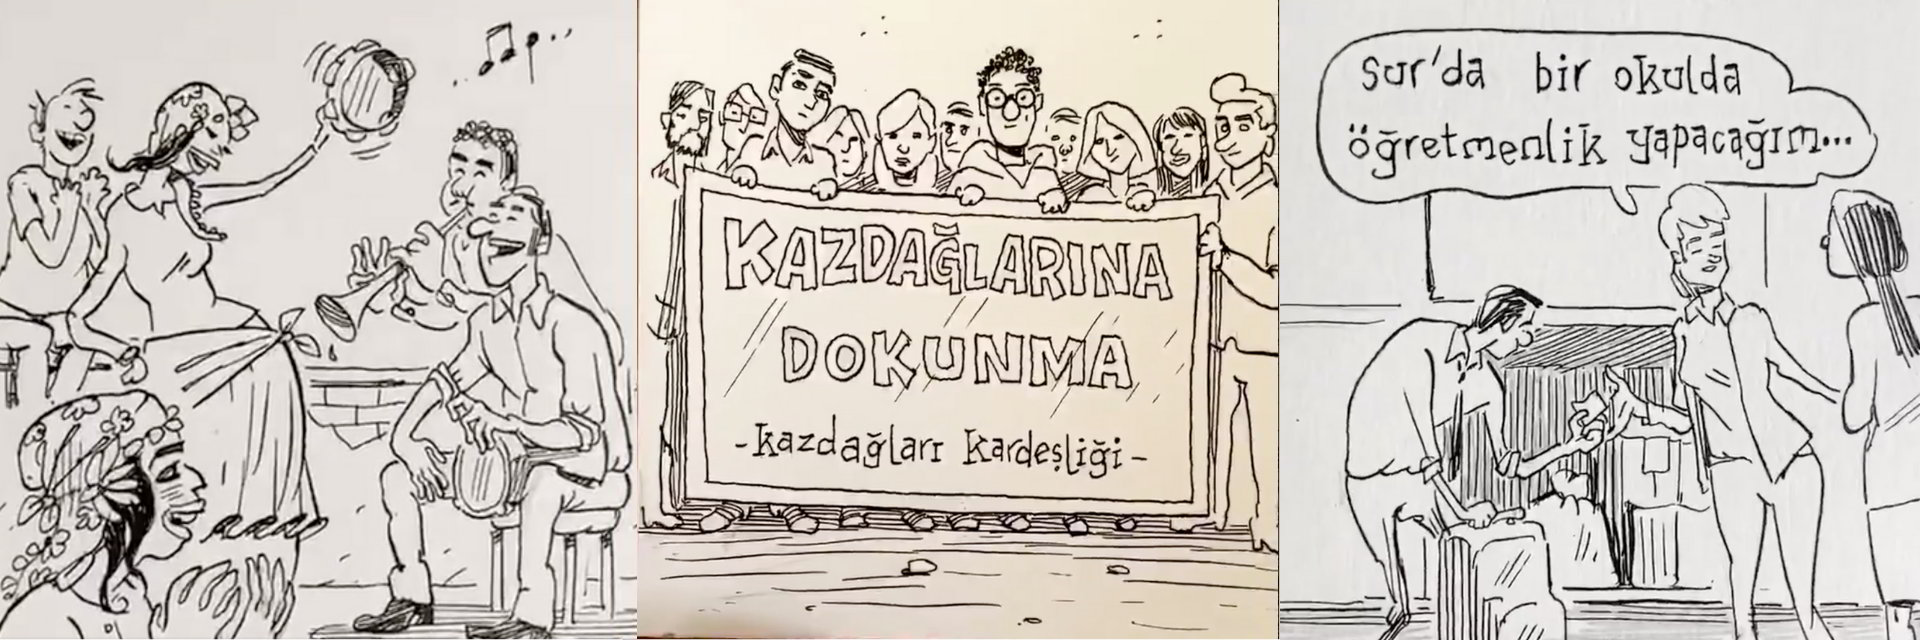 KAZDAĞLARINA
DOKUNMA
-Kazdağları Kardeşliği-
Sur'da bir okulda
öğretmenlik yapacağım...